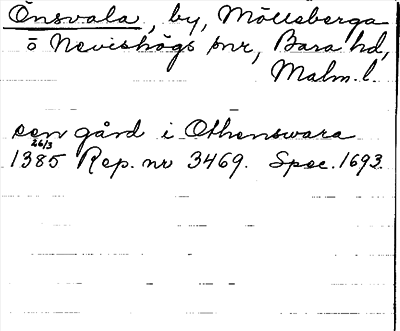 Önsvala, by, Mölleberga
o Nevishögs snr, Bara hd,
Malm. l.
sen gård i Othenswara
1385 26/3 Rep. nr 3469. Spec. 1693.